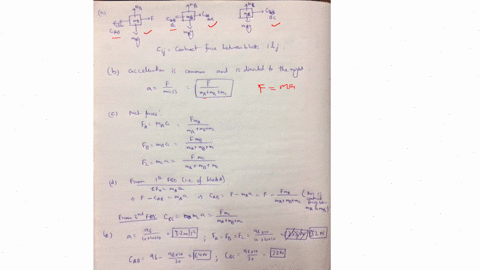 (a)
F
C_AB
C_BC
C_ij = Contact force between blocks i & j
(b) acceleration is common and is directed to the right
a = F/mass = F/(m_A+m_B+m_C)
F = ma
(c) Net force:
F_A = m_A a = F m_A/(m_A+m_B+m_C)
F_B = m_B a = F m_B/(m_A+m_B+m_C)
F_C = m_C a = F m_C/(m_A+m_B+m_C)
(d) From 1st FBD (i.e. of block A)
ΣF_A = m_A a
⇒ F - C_AB = m_A a ⇒ C_AB = F - m_A a = F - F m_A/(m_A+m_B+m_C)
From 2nd FBD, C_BC = m_C a = F m_C/(m_A+m_B+m_C)
(e) a = 96/ = 3.2 m/s² ; F_A = F_B = F_C = = 32 N
C_AB = 96 - 96×10/30 = 64 N ; C_BC = 96×10/30 = 32 N